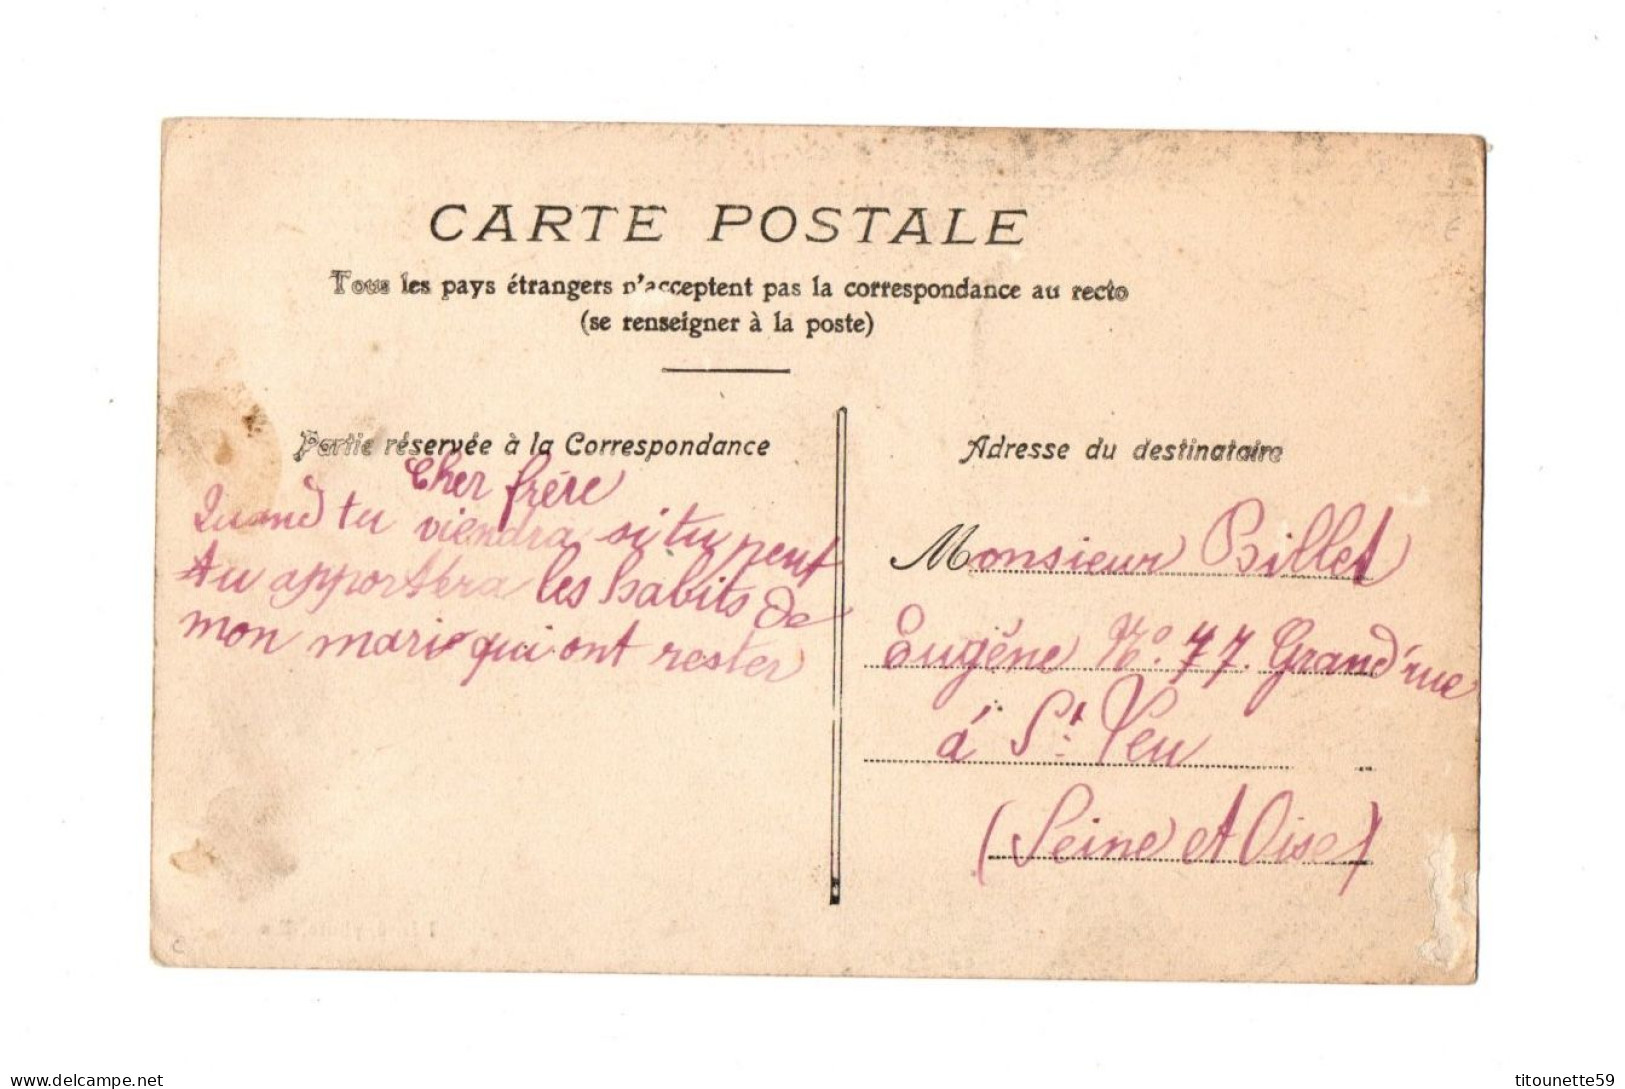 CARTE POSTALE
Tous les pays étrangers n'acceptent pas la correspondance au recto
(se renseigner à la poste)
Partie réservée à la Correspondance
Cher frére
Quand tu viendra si tu peut
tu apportera les habits de
mon mari qui ont rester
Adresse du destinataire
Monsieur Billet
Eugéne No. 77. Grand'rue
á St. Leu
(Seine et Oise)
titounette59
delcampe.net